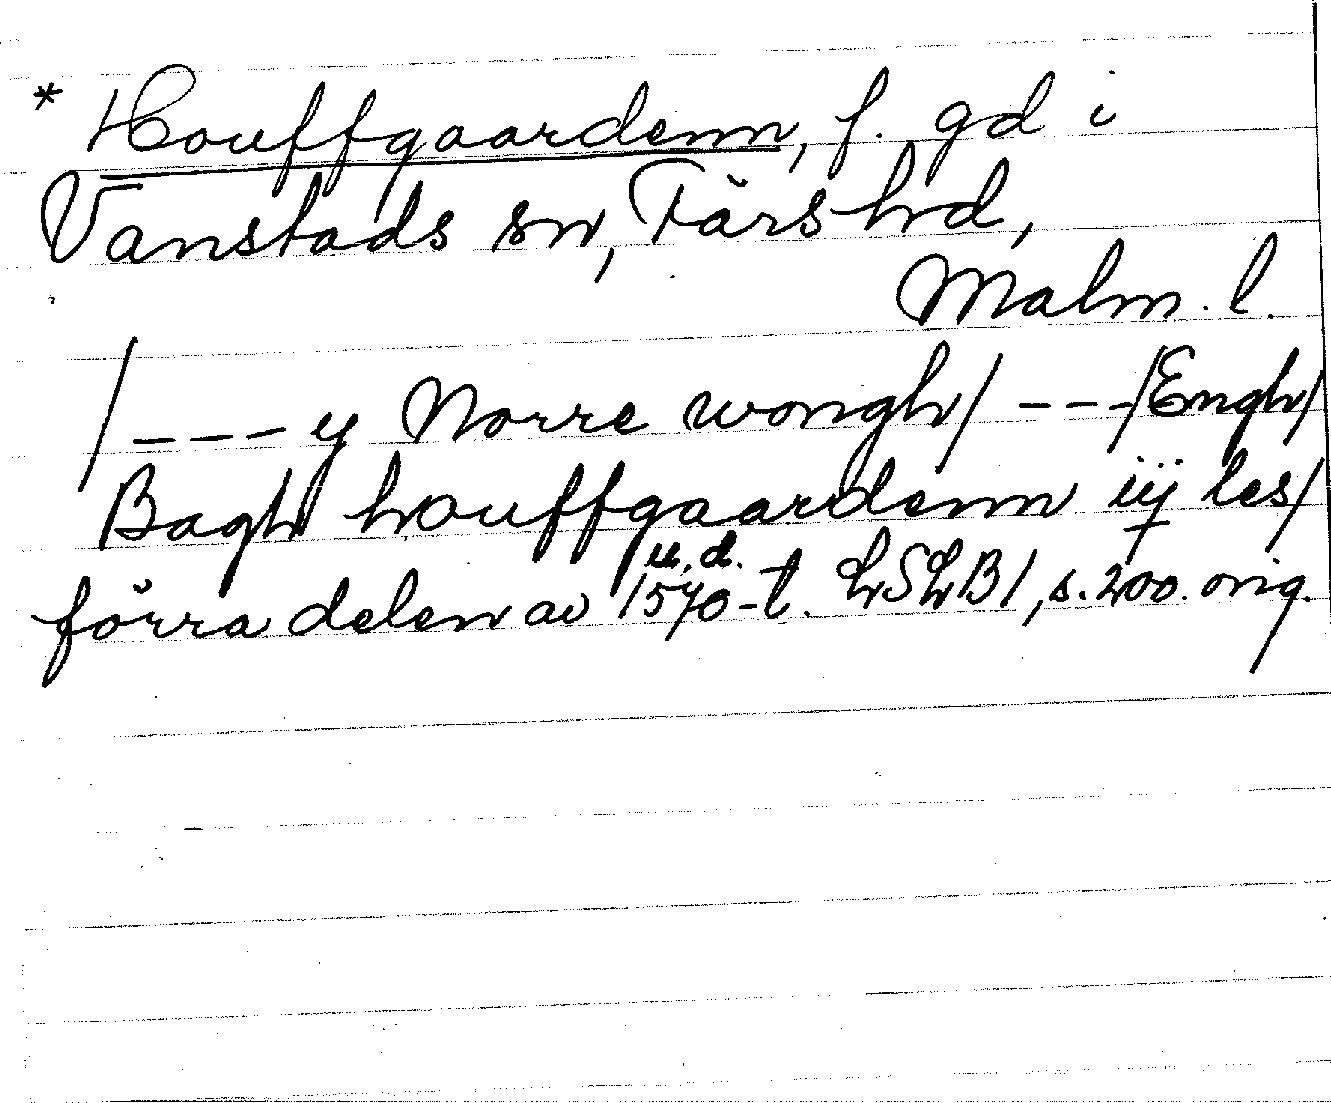 * Houffgaardenn, f. gd i
Vanstads sn, Färs hd,
Malm. l.
/--- y Norre wongh/ ---/Engh/
Bagh houffgaardenn iij les/
u.d.
förra delen av 1570-t. LSLB1, s. 200. orig.